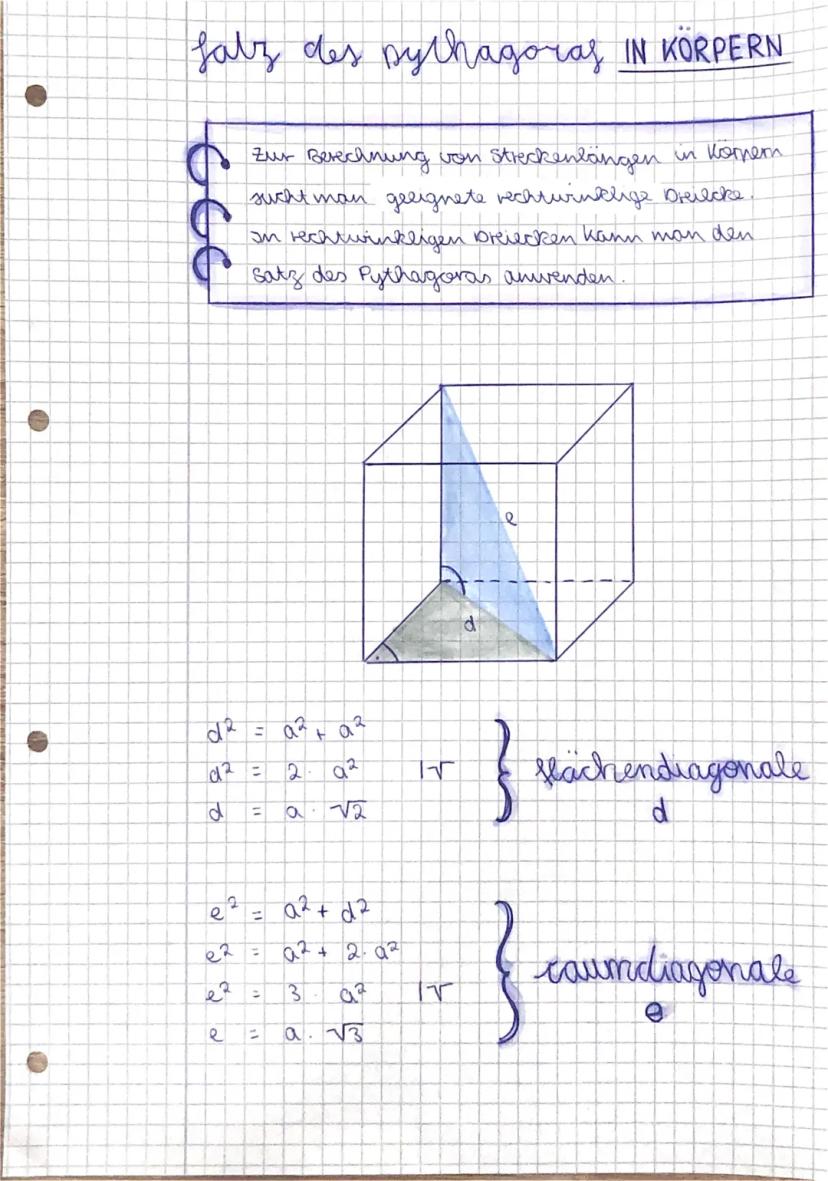 Satz des Pythagoras IN KÖRPERN
Zur Berechnung von Streckenlängen in Körpern
sucht man geeignete rechtwinklige Dreiecke.
In rechtwinkeligen Dreiecken kann man den
Satz des Pythagoras anwenden.
e
d
d² = a² + a²
d² = 2 · a² |√
d = a · √2
flächendiagonale
d
e² = a² + d²
e² = a² + 2 · a²
e² = 3 · a² |√
e = a · √3
raumdiagonale
e